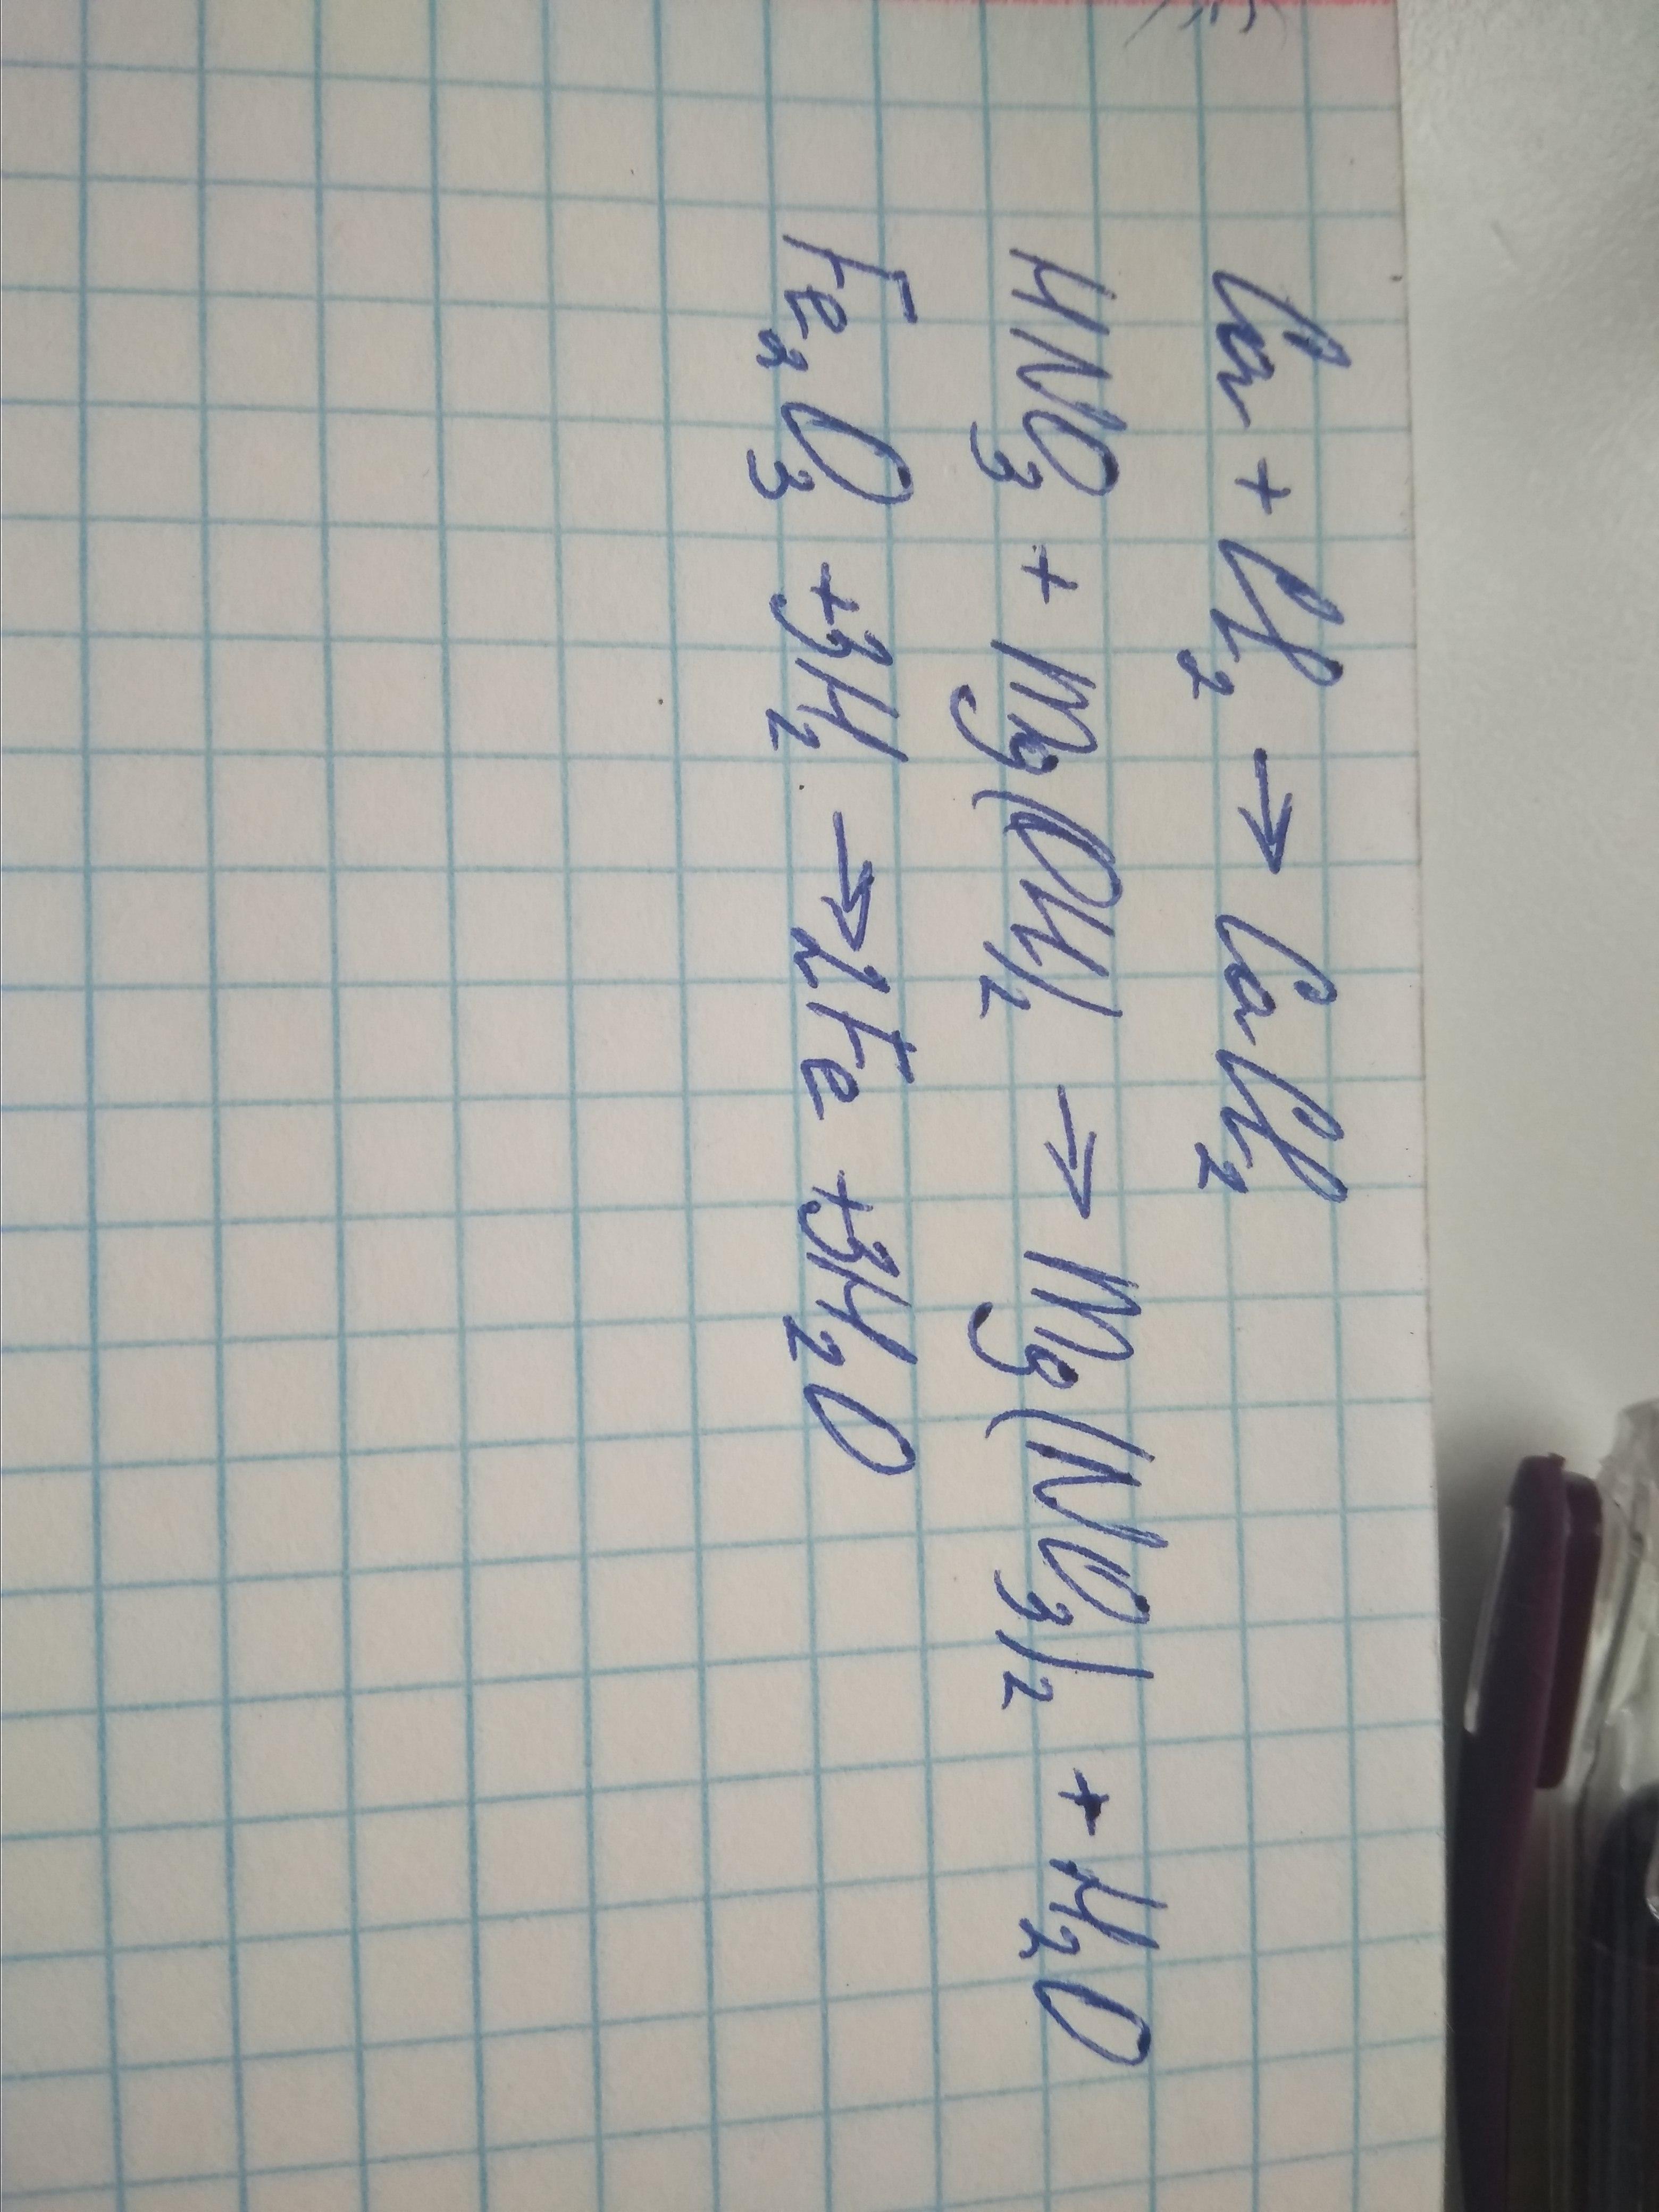 Ca + Cl₂ → CaCl₂
HNO₃ + Mg(OH)₂ → Mg(NO₃)₂ + H₂O
Fe₂O₃ + 3H₂ → 2Fe + 3H₂O